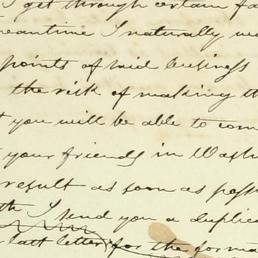 I get through certain fa
meantime I naturally wa
points of said business
the risk of making th
t you will be able to com
t your friends in Washi
result as soon as poss
th I send you a duplica
last letter, for the forma